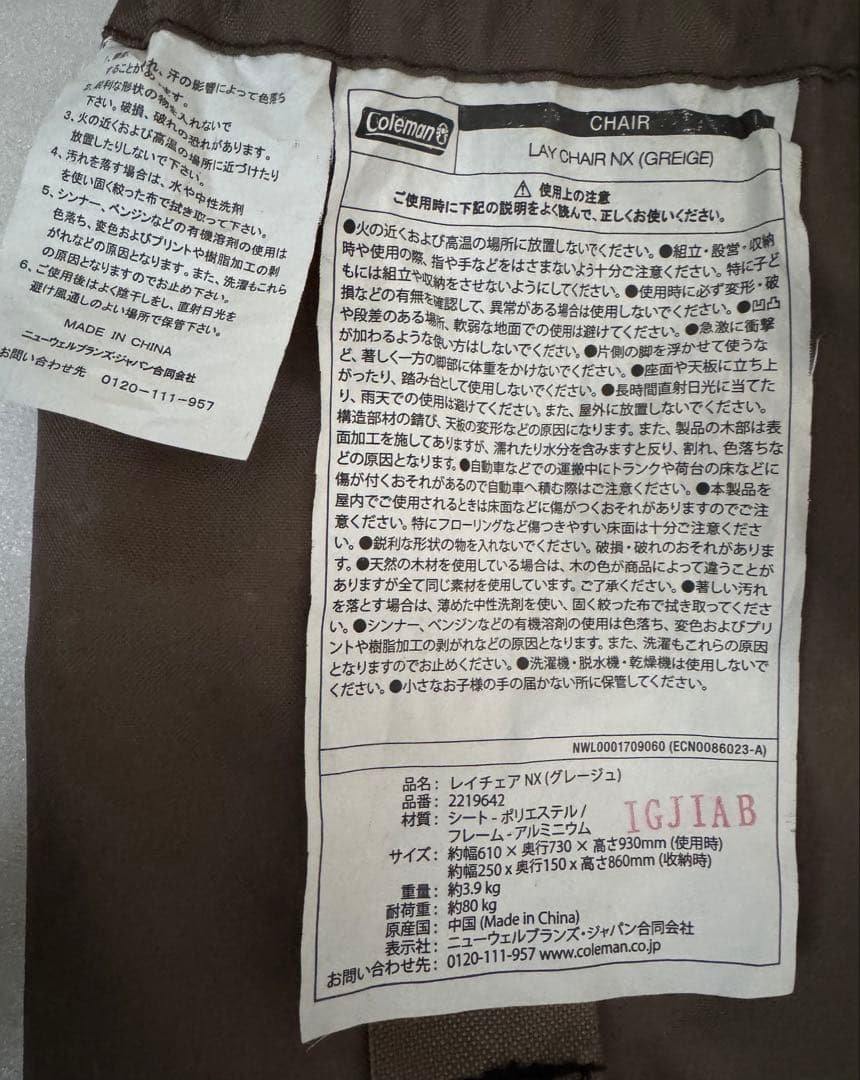 れ、汗の影響によって色落ち
することがあります。
鋭利な形状の物を入れないで
下さい。破損、破れの恐れがあります。
3、火の近くおよび高温の場所に近づけたり
放置したりしないで下さい。
4、汚れを落す場合は、水や中性洗剤
を使い固く絞った布で拭き取って下さい。
5、シンナー、ベンジンなどの有機溶剤の使用は
色落ち、変色およびプリントや樹脂加工の剥
がれなどの原因となります。また、洗濯もこれら
の原因となりますのでお止め下さい。
6、ご使用後はよく陰干しをし、直射日光を
避け風通しのよい場所で保管下さい。
MADE IN CHINA
ニューウェルブランズ・ジャパン合同会社
お問い合わせ先 0120-111-957
Coleman
CHAIR
LAY CHAIR NX (GREIGE)
⚠ 使用上の注意
ご使用時に下記の説明をよく読んで、正しくお使いください。
●火の近くおよび高温の場所に放置しないでください。●組立・設営・収納
時や使用の際、指や手などをはさまないよう十分ご注意ください。特に子ど
もには組立や収納をさせないようにしてください。●使用時に必ず変形・破
損などの有無を確認して、異常がある場合は使用しないでください。●凹凸
や段差のある場所、軟弱な地面での使用は避けてください。●急激に衝撃
が加わるような使い方はしないでください。●片側の脚を浮かせて使うな
ど、著しく一方の脚部に体重をかけないでください。●座面や天板に立ち上
がったり、踏み台として使用しないでください。●長時間直射日光に当てた
り、雨天での使用は避けてください。また、屋外に放置しないでください。
構造部材の錆び、天板の変形などの原因になります。また、製品の木部は表
面加工を施してありますが、濡れたり水分を含みますと反り、割れ、色落ちな
どの原因となります。●自動車などでの運搬中にトランクや荷台の床などに
傷が付くおそれがあるので自動車へ積む際はご注意ください。●本製品を
屋内でご使用されるときは床面などに傷がつくおそれがありますのでご注
意ください。特にフローリングなど傷つきやすい床面は十分ご注意くださ
い。●鋭利な形状の物を入れないでください。破損・破れのおそれがありま
す。●天然の木材を使用している場合は、木の色が商品によって違うことが
ありますが全て同じ素材を使用しています。ご了承ください。●著しい汚れ
を落とす場合は、薄めた中性洗剤を使い、固く絞った布で拭き取ってくださ
い。●シンナー、ベンジンなどの有機溶剤の使用は色落ち、変色およびプリ
ントや樹脂加工の剥がれなどの原因となります。また、洗濯もこれらの原因
となりますのでお止めください。●洗濯機・脱水機・乾燥機は使用しないで
ください。●小さなお子様の手の届かない所に保管してください。
NWL0001709060 (ECN0086023-A)
品名： レイチェア NX (グレージュ)
品番： 2219642
材質： シート - ポリエステル /
フレーム - アルミニウム
IGJIAB
サイズ： 約幅610 × 奥行730 × 高さ930mm (使用時)
約幅250 x 奥行150 x 高さ860mm (収納時)
重量： 約3.9 kg
耐荷重： 約80 kg
原産国： 中国 (Made in China)
表示社： ニューウェルブランズ・ジャパン合同会社
お問い合わせ先： 0120-111-957 www.coleman.co.jp